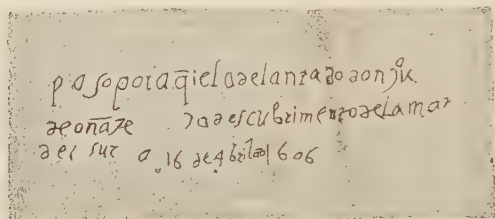 paso por aq̄i el adelantado don jů
de oñate del descubrimento de la mar
del sur a 16 de Abril do 1606